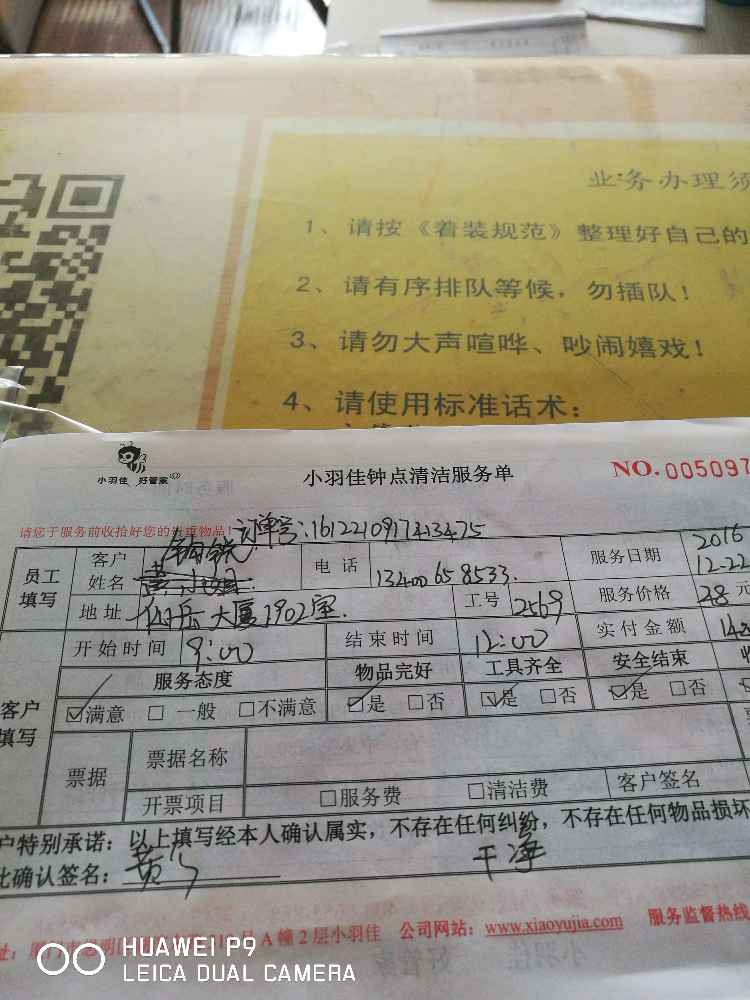 业务办理须
1、请按《着装规范》整理好自己的
2、请有序排队等候，勿插队！
3、请勿大声喧哗、吵闹嬉戏！
4、请使用标准话术：
小羽佳 好管家
小羽佳钟点清洁服务单
NO.005097
请您于服务前收拾好您的贵重物品！
订单号：1612210917413475
员工填写
客户姓名
电话 13400658533.
服务日期 2016 12-22
地址 大厦1902室.
工号 2569
服务价格 28元
开始时间 9:00
结束时间 12:00
实付金额
客户填写
服务态度 物品完好 工具齐全 安全结束
☑满意 □一般 □不满意 ☑是 □否 ☑是 □否 ☑是 □否
票据
票据名称
开票项目 □服务费 □清洁费 客户签名
户特别承诺：以上填写经本人确认属实，不存在任何纠纷，不存在任何物品损坏
此确认签名：
干净
A幢2层小羽佳 公司网站：www.xiaoyujia.com 服务监督热线
HUAWEI P9
LEICA DUAL CAMERA